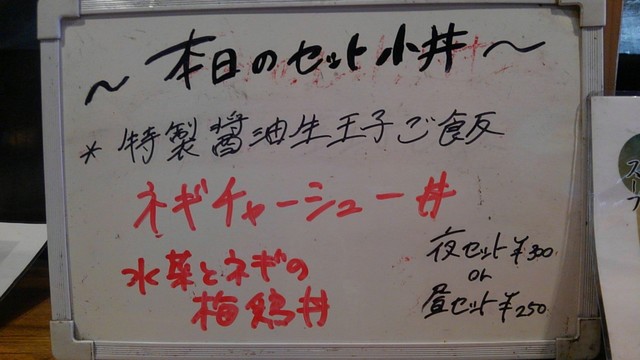 ～本日のセット小丼～
*特製醤油生玉子ご飯
ネギチャーシュー丼
水菜とネギの
梅鶏丼
夜セット¥300
or
昼セット¥250
スープ